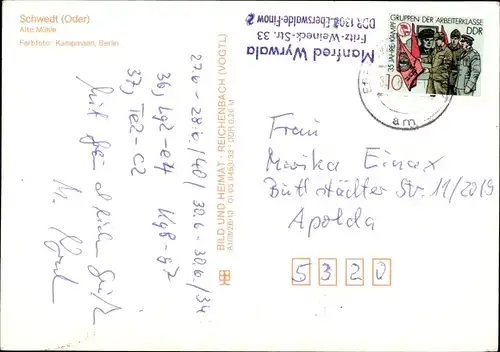 Schwedt (Oder)
Alte Mühle
Farbfoto: Kampmann, Berlin
27.6 - 28.6./40/ 30.6 - 30.6/34:
36, Lg2-e4 Kg8-g7
37, Te2-c2
Mit freundlichem Gruß
BILD UND HEIMAT · REICHENBACH (VOGTL)
A1/III/26/13 01 05 0453/33 DDR 0,20 M
Manfred Wyrwala
Fritz-Weineck-Str. 33
DDR 1302 Eberswalde-Finow 2
35 JAHRE KAMPFGRUPPEN DER ARBEITERKLASSE
DDR
10
am
Frau
Marika Einax
Buttstädter Str. 11/2019
Apolda
5320